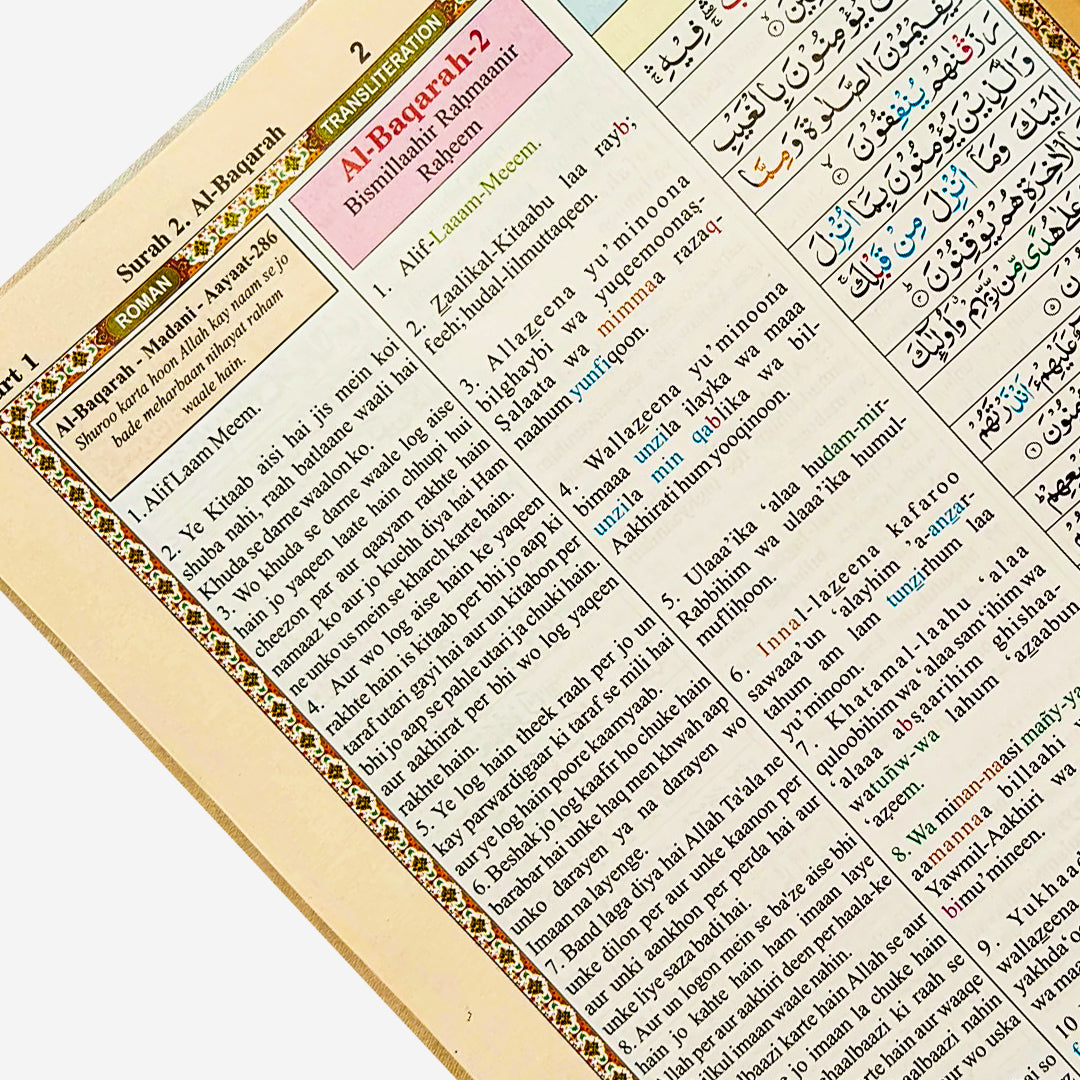 2
Surah 2. Al-Baqarah
ROMAN
TRANSLITERATION
Al-Baqarah - Madani - Aayaat-286
Shuroo karta hoon Allah kay naam se jo
bade meharbaan nihayat raham
waale hain.
1. Alif Laam Meem.
2. Ye Kitaab aisi hai jis mein koi
shuba nahi, raah batlaane waali hai
Khuda se darne waalon ko.
3. Wo khuda se darne waale log aise
hain jo yaqeen laate hain chhupi hui
cheezon par aur qaayam rakhte hain
namaaz ko aur jo kuchh diya hai Ham
ne unko us mein se kharch karte hain.
4. Aur wo log aise hain ke yaqeen
rakhte hain is kitaab per bhi jo aap ki
taraf utari gayi hai aur un kitabon per
bhi jo aap se pahle utari ja chuki hain.
aur aakhirat per bhi wo log yaqeen
rakhte hain.
5. Ye log hain theek raah per jo un
kay parwardigaar ki taraf se mili hai
aur ye log hain poore kaamyaab.
6. Beshak jo log kaafir ho chuke hain
barabar hai unke haq men khwah aap
unko darayen ya na darayen wo
Imaan na layenge.
7. Band laga diya hai Allah Ta'ala ne
unke dilon per aur unke kaanon per
aur unki aankhon per perda hai aur
unke liye saza badi hai.
8. Aur un logon mein se ba'ze aise bhi
hain jo kahte hain ham imaan laye
Allah per aur aakhiri deen per haala-ke
bilkul imaan waale nahin.
baazi karte hain Allah se aur
jo imaan la chuke hain
haalbaazi ki raah se
rte hain aur waaqe
aalbaazi nahin
ur wo uska
Al-Baqarah-2
Bismillaahir Raḥmaanir
Raḥeem
1. Alif-Laaam-Meeem.
2. Zaalikal-Kitaabu laa rayb;
feeh; hudal-lilmuttaqeen.
3. Allazeena yu'minoona
bilghaybi wa yuqeemoonaṣ-
Ṣalaata wa mimmaa razaq-
naahum yunfiqoon.
4. Wallazeena yu'minoona
bimaaa unzila ilayka wa maaa
unzila min qablika wa bil-
Aakhirati hum yooqinoon.
5. Ulaaa'ika 'alaa hudam-mir-
Rabbihim wa ulaaa'ika humul-
mufliḥoon.
6. Innal-lazeena kafaroo
sawaaa'un 'alayhim 'a-anzar-
tahum am lam tunzirhum laa
yu'minoon.
7. Khatamal-laahu 'alaa
quloobihim wa 'alaa sam'ihim wa
'alaaa absaarihim ghishaa-
watunw-wa lahum 'azaabun
'azeem.
8. Wa minan-naasi many-ya
aamannaa billaahi
Yawmil-Aakhiri wa
bimu'mineen.
9. Yukhaad
wallazeena
yakhda'o
wa ma
10
فِيْهِ
يُؤْمِنُوْنَ بِالْغَيْبِ
يُقِيْمُوْنَ الصَّلٰوةَ وَمِمَّا
رَزَقْنٰهُمْ يُنْفِقُوْنَ
وَالَّذِيْنَ يُؤْمِنُوْنَ بِمَاۤ اُنْزِلَ
اِلَيْكَ وَمَاۤ اُنْزِلَ مِنْ قَبْلِكَ
الْاٰخِرَةِ هُمْ يُوْقِنُوْنَ
عَلٰى هُدًى مِّنْ رَّبِّهِمْ وَاُولٰٓئِكَ